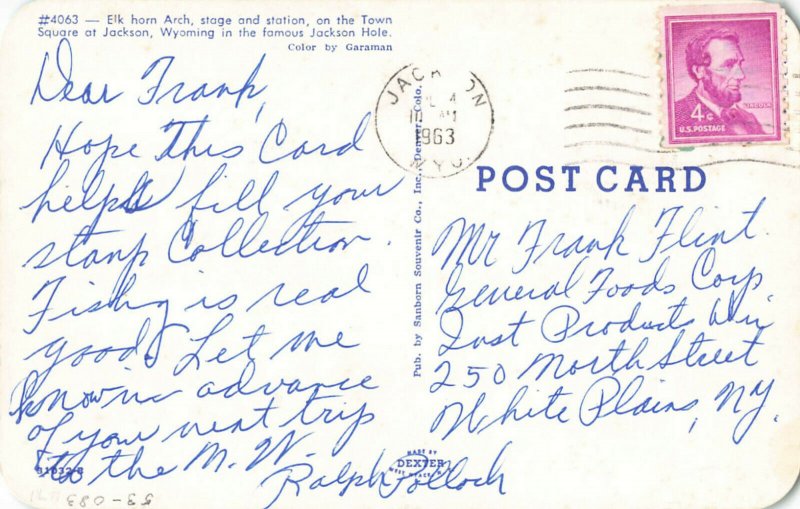 #4063 — Elk horn Arch, stage and station, on the Town
Square at Jackson, Wyoming in the famous Jackson Hole.
Color by Garaman
Dear Frank,
Hope this Card
helps fill your
stamp Collection.
Fishing is real
good. Let me
know in advance
of your next trip
to the M.W.
Ralph Pollock
Pub. by Sanborn Souvenir Co., Inc., Denver, Colo.
JACKSON
4
1963
WYO.
LINCOLN
4¢
U.S. POSTAGE
POST CARD
Mr Frank Flint.
General Foods Corp.
Inst Products Div
250 North Street
White Plains, NY.
MADE BY
DEXTER
53-083